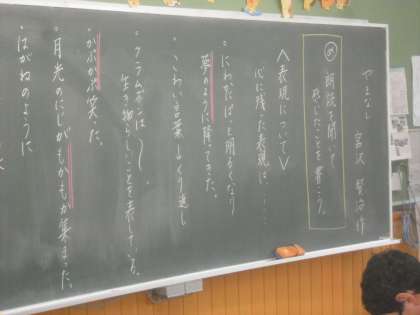 やまなし 宮沢 賢治作
め 朗読を聞いて
感じたことを書こう。
〈表現について〉
心に残った表現は……
・にわかにぱっと明るくなり
夢のように降ってきた。
・こわい言葉 くり返し
・クラムボンは
生き物らしいことを表している。
・かぷかぷ笑った。
・月光のにじがもかもか集まった。
・はがねのように